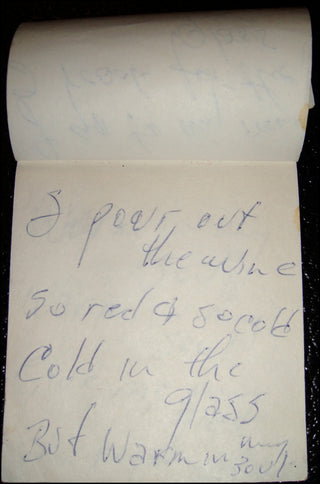 I pour out
the wine
so red & so cold
Cold in the
glass
But warm in my
soul.